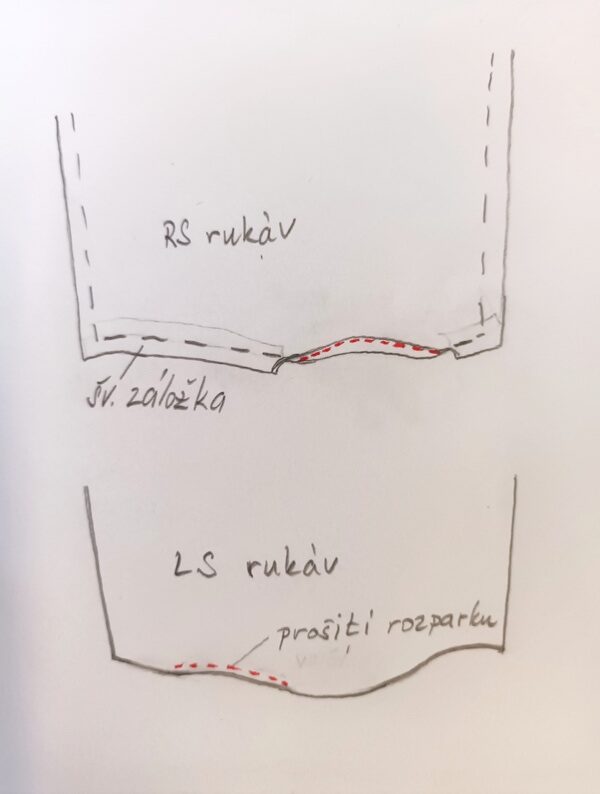 RS rukáv
šv. záložka
LS rukáv
prošití rozparku